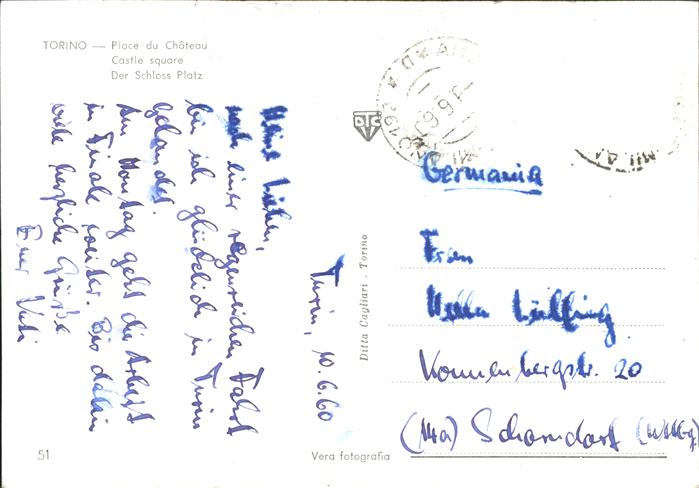 TORINO — Place du Château
Castle square
Der Schloss Platz
Turin, 10.6.60
Meine Lieben,
nach einer regenreichen Fahrt
bin ich glücklich in Turin
gelandet.
Am Montag geht die Arbeit
in Finale weiter. Bis dahin
viele herzliche Grüße
Euer Vati
DTC
MILA
Germania
Frau
Lülfing
Konnenbergstr. 20
(14a) Schorndorf
Ditta Cagliari - Torino
51
Vera fotografia